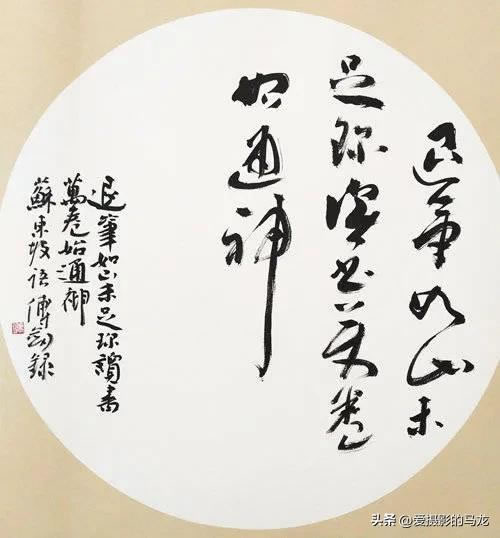 退筆如山未
足珍讀書萬卷
始通神
退筆如山未足珍讀書
萬卷始通神
蘇東坡語 傅 錄
头条 @爱摄影的马龙